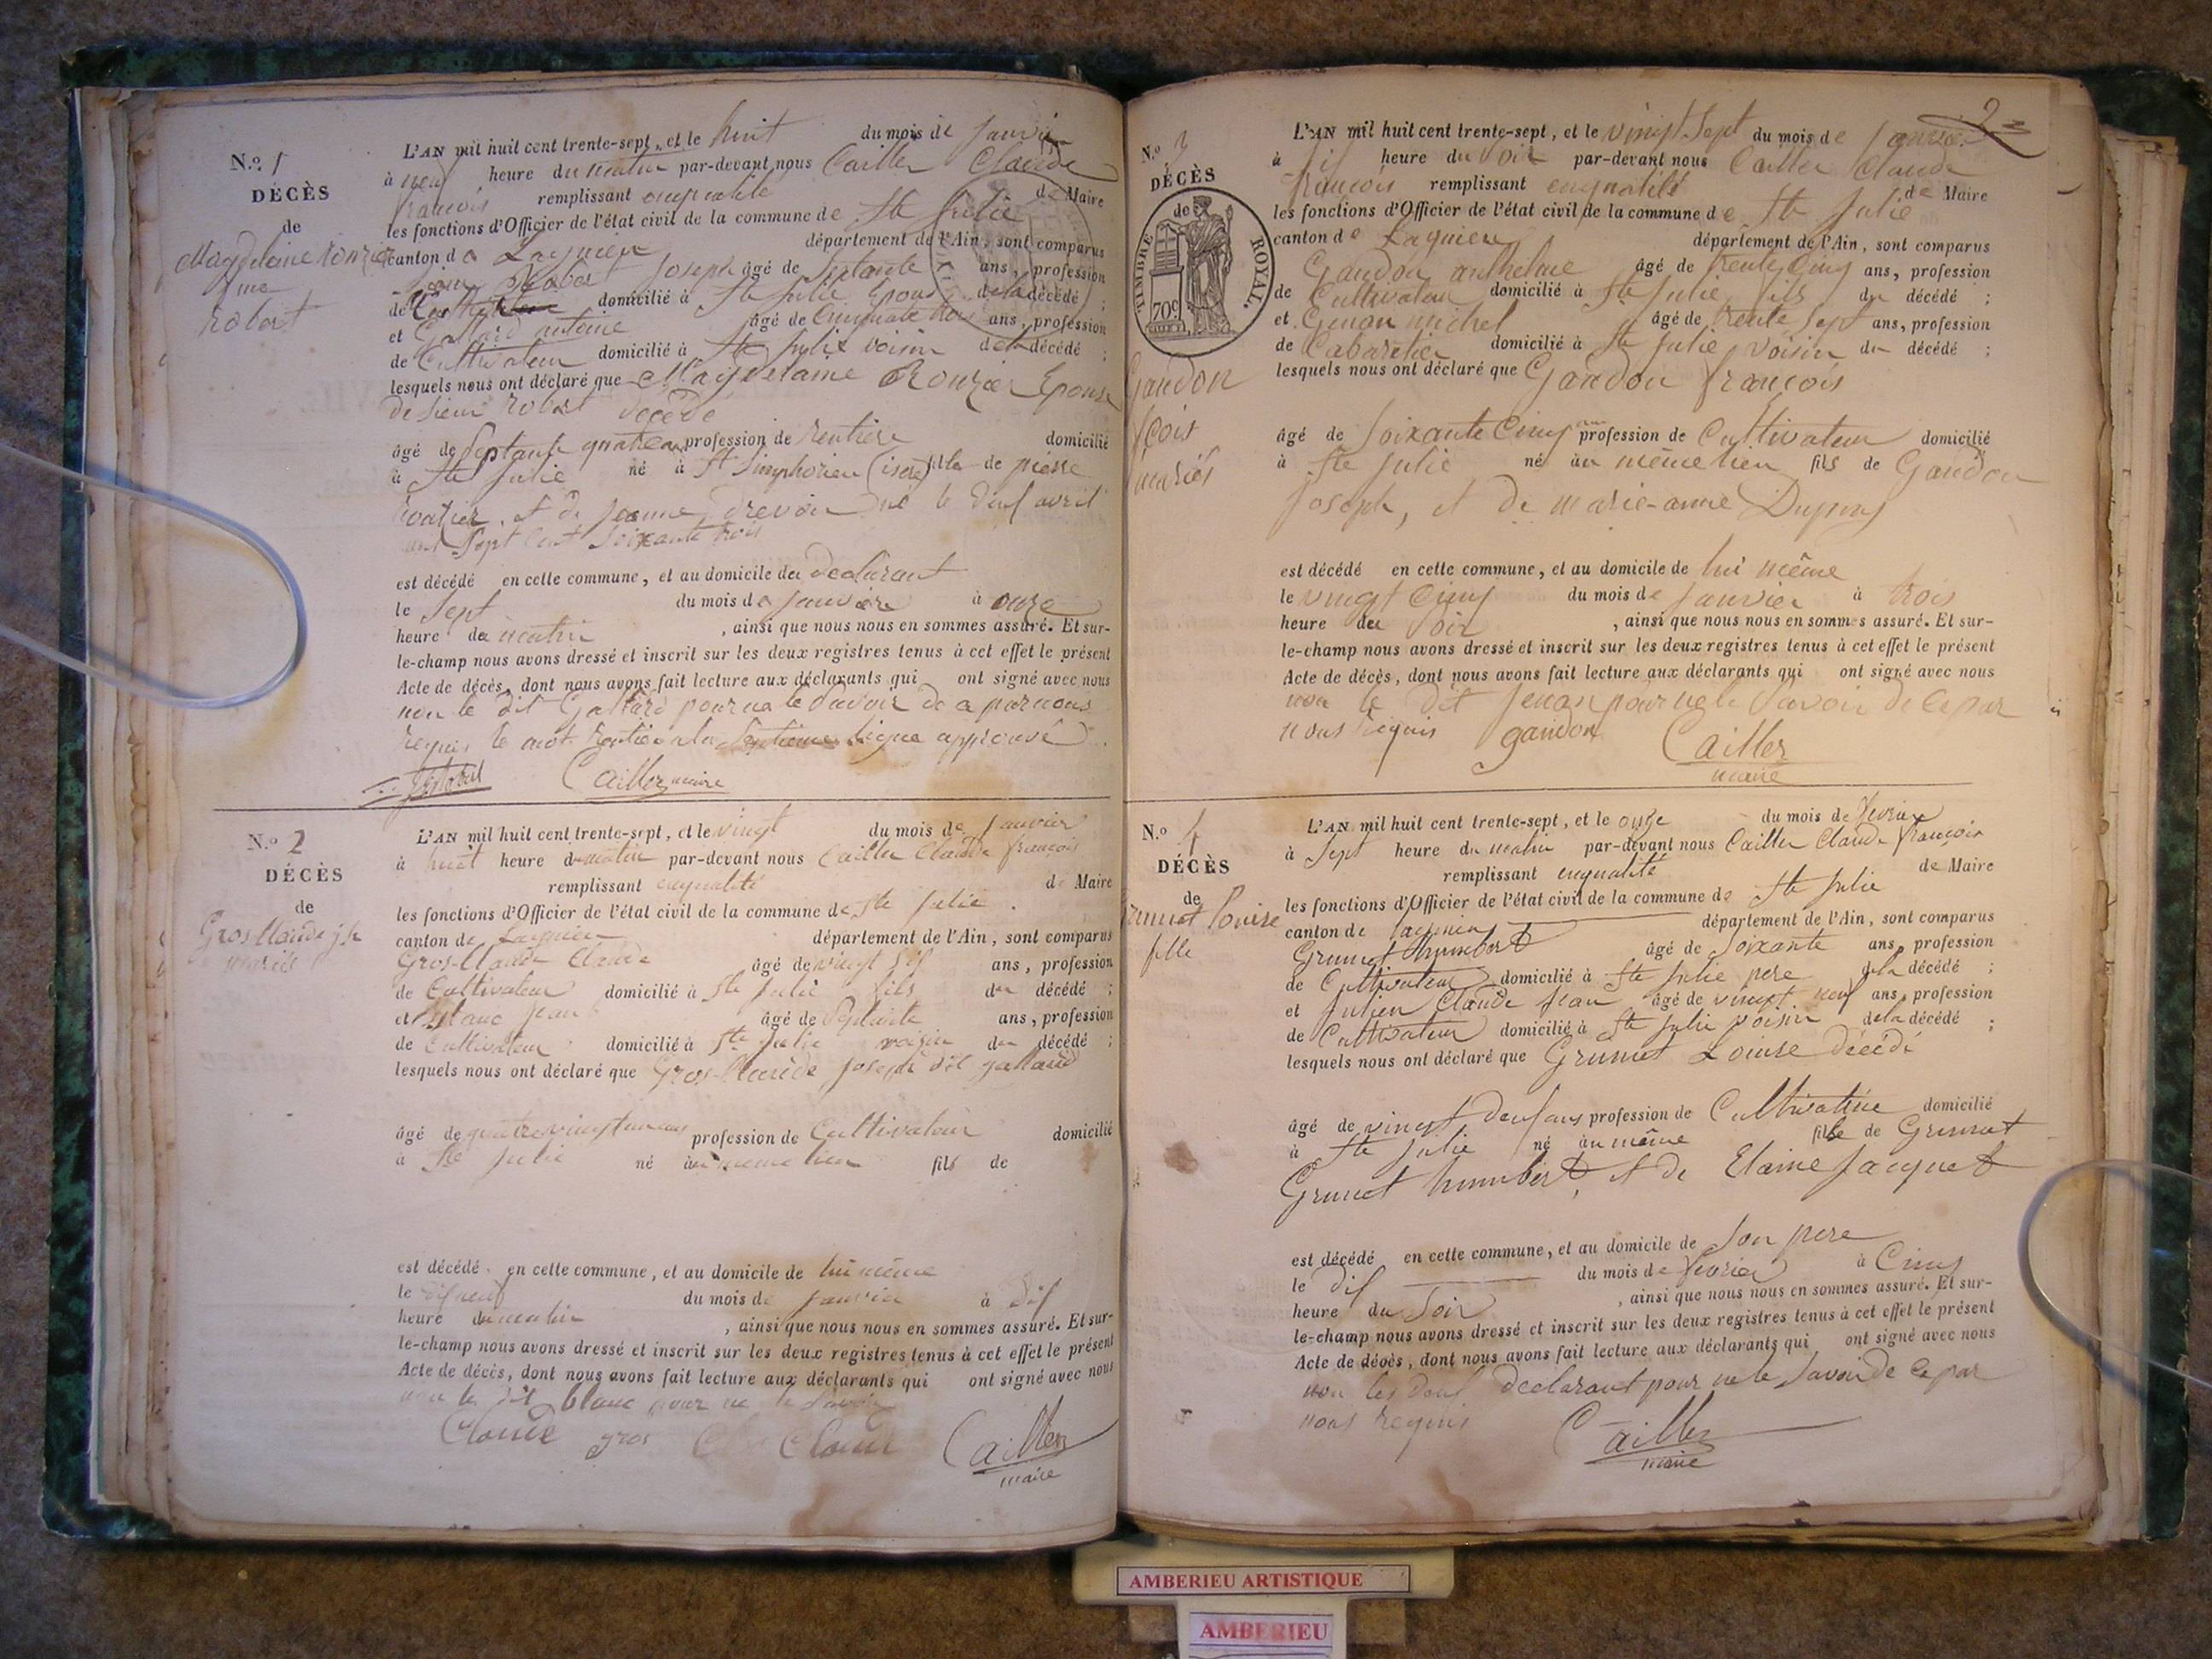 N.o 1
DÉCÈS
de
Magdelaine ronzier
fme
robert
L'AN mil huit cent trente-sept, et le huit du mois de janvier
à neuf heure du matin par-devant nous Cailler Claude
françois remplissant enqualité de Maire
les fonctions d'Officier de l'état civil de la commune de Ste Julie
canton de Lagnieu département de l'Ain, sont comparus
Joseph âgé de Septante ans, profession
de domicilié à Ste Julie Epoux de la décédé ;
et Gallard antoine âgé de Cinquante ans, profession
de Cultivateur domicilié à Ste Julie voisin de la décédé ;
lesquels nous ont déclaré que Magdelaine Ronzier Epouse
de sieur Robert décédé
âgé de Septante quatre ans profession de rentiere domicilié
à Ste Julie né à St Simphorien (isere) fille de pierre
et de jeanne né le avril
Sept Cent Soixante trois
est décédé en cette commune, et au domicile du declarant
le Sept du mois de janvier à onze
heure du matin , ainsi que nous nous en sommes assuré. Et sur-
le-champ nous avons dressé et inscrit sur les deux registres tenus à cet effet le présent
Acte de décès, dont nous avons fait lecture aux déclarants qui ont signé avec nous
non le dit Gallard pour ne le savoir de a par nous
requis le mot ligne approuvé
Cailler maire
N.o 2
DÉCÈS
de
Gros Claude jh
mariés
L'AN mil huit cent trente-sept, et le vingt du mois de janvier
à huit heure du matin par-devant nous Cailler Claude françois
remplissant enqualité de Maire
les fonctions d'Officier de l'état civil de la commune de Ste Julie
canton de Lagnieu département de l'Ain, sont comparus
Gros-Claude Claude âgé de vingt ans, profession
de Cultivateur domicilié à Ste Julie fils du décédé ;
et blanc jean âgé de Septante ans, profession
de Cultivateur domicilié à Ste Julie voisin du décédé ;
lesquels nous ont déclaré que Gros-Claude joseph dit galland
âgé de quatrevingt un ans profession de Cultivateur domicilié
à Ste Julie né au meme lieu fils de
est décédé en cette commune, et au domicile de lui même
le dixneuf du mois de janvier à dix
heure du matin , ainsi que nous nous en sommes assuré. Et sur-
le-champ nous avons dressé et inscrit sur les deux registres tenus à cet effet le présent
Acte de décès, dont nous avons fait lecture aux déclarants qui ont signé avec nous
non le dit blanc pour ne le savoir
Claude gros Cailler
maire
2
N.o 3
DÉCÈS
de
TIMBRE ROYAL.
70c
Gandon
fçois
mariés
L'AN mil huit cent trente-sept, et le vingt Sept du mois de janvier
à six heure du soir par-devant nous Cailler Claude
françois remplissant enqualité de Maire
les fonctions d'Officier de l'état civil de la commune de Ste Julie
canton de Lagnieu département de l'Ain, sont comparus
Gandon anthelme âgé de trente Cinq ans, profession
de Cultivateur domicilié à Ste Julie fils du décédé ;
et Genon michel âgé de trente Sept ans, profession
de Cabaretier domicilié à Ste Julie voisin du décédé ;
lesquels nous ont déclaré que Gandon françois
âgé de Soixante Cinq ans profession de Cultivateur domicilié
à Ste Julie né au même lieu fils de Gandon
Joseph, et de marie-anne Dupuy
est décédé en cette commune, et au domicile de lui même
le vingt Cinq du mois de janvier à trois
heure du soir , ainsi que nous nous en sommes assuré. Et sur-
le-champ nous avons dressé et inscrit sur les deux registres tenus à cet effet le présent
Acte de décès, dont nous avons fait lecture aux déclarants qui ont signé avec nous
non le dit jenon pour ne le savoir de ce par
nous requis gandon Cailler
maire
N.o 4
DÉCÈS
de
Grumet Louise
fille
L'AN mil huit cent trente-sept, et le onze du mois de fevrier
à Sept heure du matin par-devant nous Cailler Claude françois
remplissant enqualité de Maire
les fonctions d'Officier de l'état civil de la commune de Ste Julie
canton de Lagnieu département de l'Ain, sont comparus
Grumet humbert âgé de Soixante ans, profession
de Cultivateur domicilié à Ste Julie pere de la décédé ;
et Julien Claude Jean âgé de vingt neuf ans, profession
de Cultivateur domicilié à Ste Julie voisin de la décédé ;
lesquels nous ont déclaré que Grumet Louise décédé
âgé de vingt deux ans profession de Cultivatrice domicilié
à Ste Julie né au même fille de Grumet
Grumet humbert, et de Elaine Jacquet
est décédé en cette commune, et au domicile de son pere
le dix du mois de fevrier à Cinq
heure du Soir , ainsi que nous nous en sommes assuré. Et sur-
le-champ nous avons dressé et inscrit sur les deux registres tenus à cet effet le présent
Acte de décès, dont nous avons fait lecture aux déclarants qui ont signé avec nous
non les deux declarant pour ne le savoir de ce par
nous requis Cailler
maire
AMBERIEU ARTISTIQUE
AMBERIEU